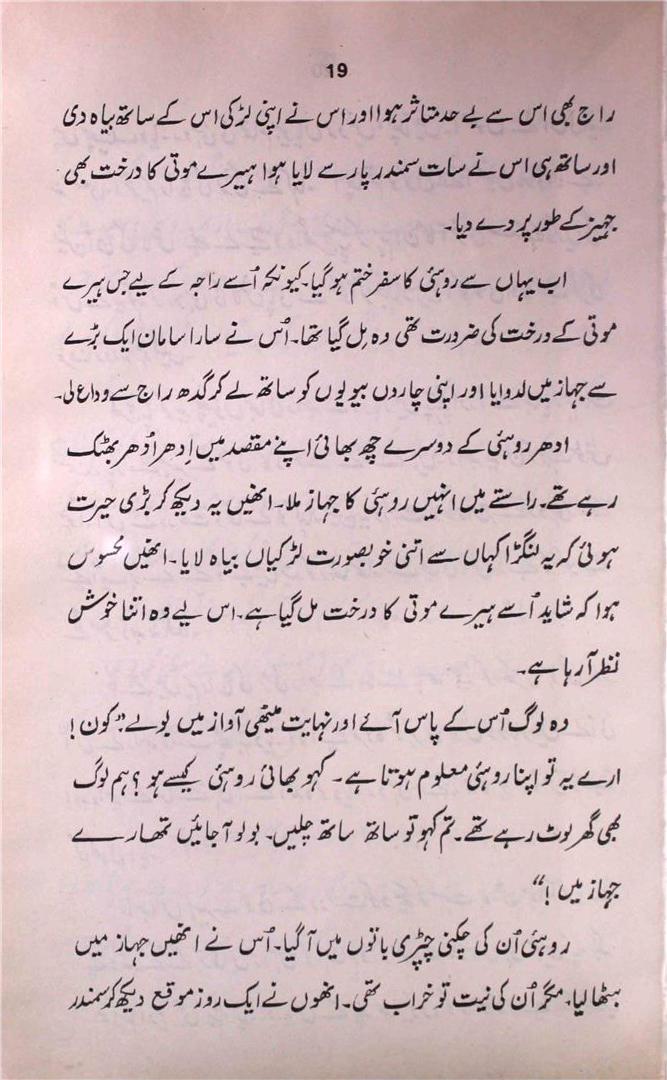 19
راج بھی اس سے بے حد متاثر ہوا اور اس نے اپنی لڑکی اس کے ساتھ بیاہ دی
اور ساتھ ہی اس نے سات سمندر پار سے لایا ہوا ہیرے موتی کا درخت بھی
جہیز کے طور پر دے دیا۔
اب یہاں سے روہنی کا سفر ختم ہو گیا۔ کیونکہ اُسے راجہ کے لیے جس ہیرے
موتی کے درخت کی ضرورت تھی وہ مل گیا تھا۔ اُس نے سارا سامان ایک بڑے
سے جہاز میں لدوایا اور اپنی چاروں بیویوں کو ساتھ لے کر گدھ راج سے وداع لی۔
ادھر روہنی کے دوسرے چھ بھائی اپنے مقصد میں اِدھر اُدھر بھٹک
رہے تھے۔ راستے میں انہیں روہنی کا جہاز ملا۔ انھیں یہ دیکھ کر بڑی حیرت
ہوئی کہ یہ لنگڑا کہاں سے اتنی خوبصورت لڑکیاں بیاہ لایا۔ انھیں محسوس
ہوا کہ شاید اُسے ہیرے موتی کا درخت مل گیا ہے۔ اس لیے وہ اتنا خوش
نظر آ رہا ہے۔
وہ لوگ اُس کے پاس آئے اور نہایت میٹھی آواز میں بولے ”کون!
ارے یہ تو اپنا روہنی معلوم ہوتا ہے۔ کہو بھائی روہنی کیسے ہو؟ ہم لوگ
بھی گھر لوٹ رہے تھے۔ تم کہو تو ساتھ ساتھ چلیں۔ بولو آ جائیں تمھارے
جہاز میں!“
روہنی اُن کی چکنی چپڑی باتوں میں آ گیا۔ اُس نے انھیں جہاز میں
بٹھا لیا، مگر اُن کی نیت تو خراب تھی۔ انھوں نے ایک روز موقع دیکھ کر سمندر